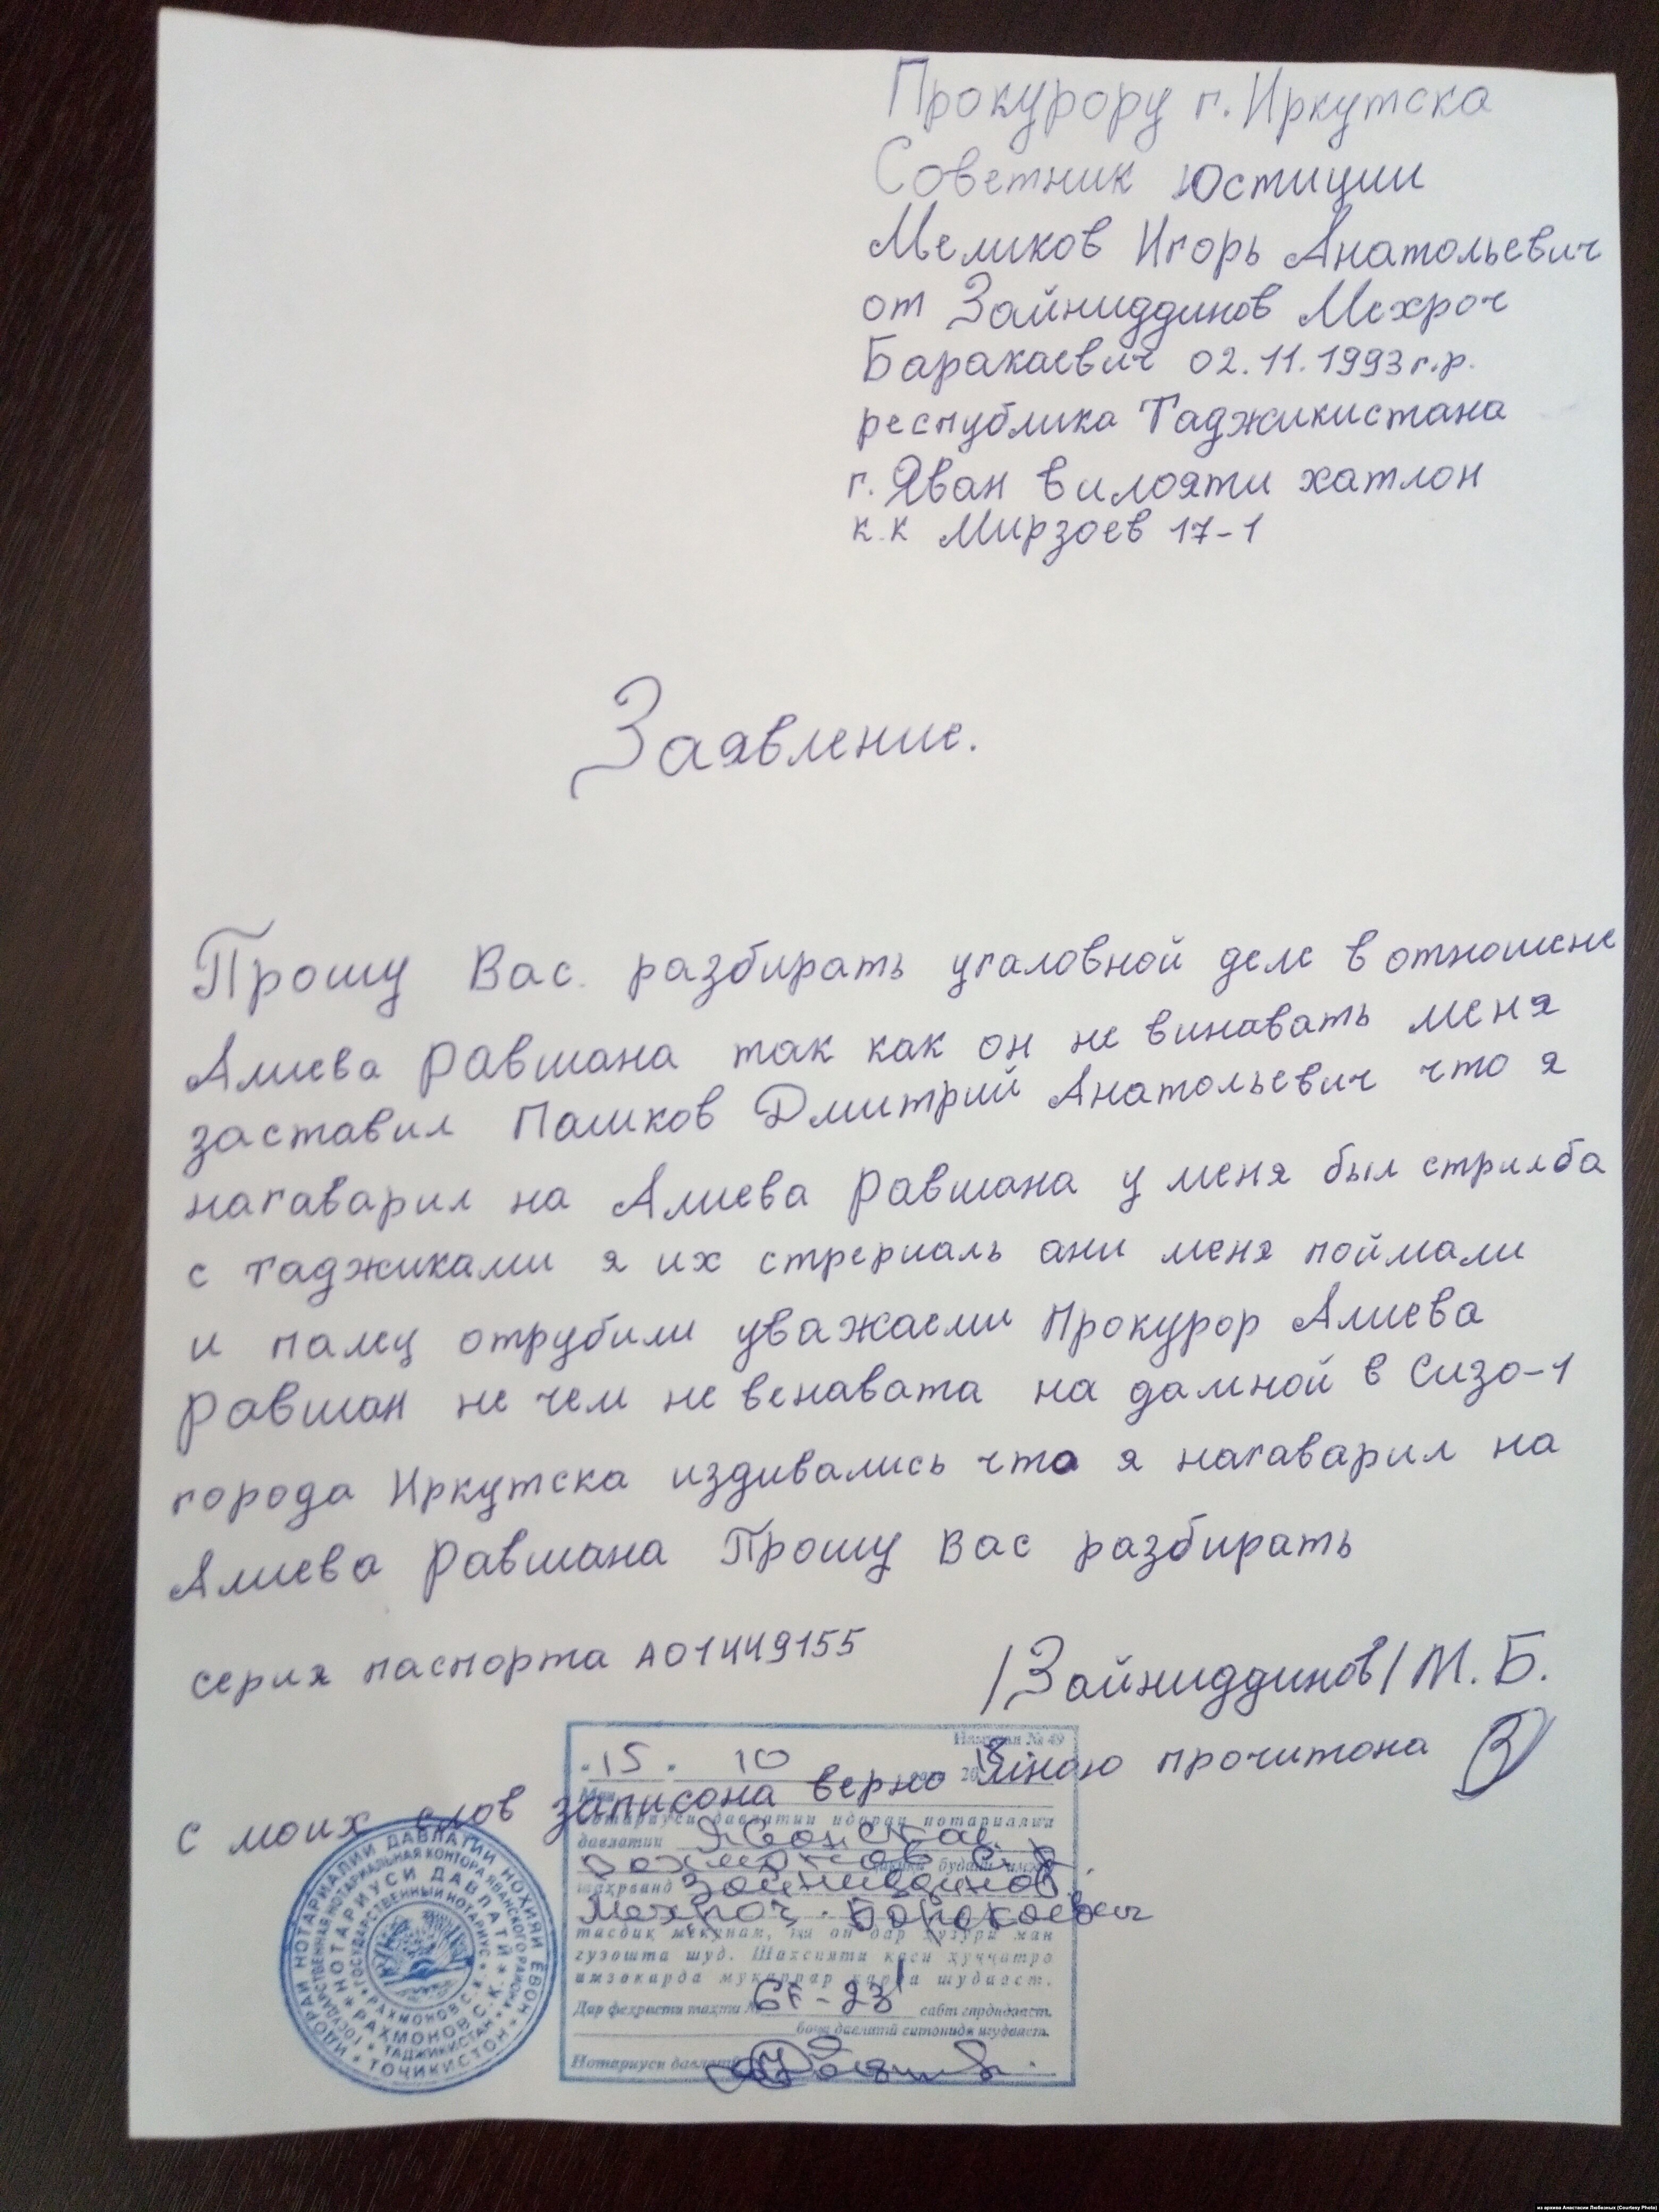 Прокурору г. Иркутска
Советник юстиции
Меликов Игорь Анатольевич
от Зайниддинов Мехроч
Баракаевич 02.11.1993 г.р.
республика Таджикистана
г. Яван вилояти хатлон
к.к Мирзоев 17-1
Заявление.
Прошу Вас. разбирать уголовной деле в отношене
Алиева Равшана так как он не винавать меня
заставил Пашков Дмитрий Анатольевич что я
нагаварил на Алиева Равшана у меня был стрилба
с таджиками я их стрериаль ани меня поймали
и палец отрубили уважаеми Прокурор Алиева
Равшан не чем не венавата на дамной в Сизо-1
города Иркутска издивались что я нагаварил на
Алиева Равшана Прошу Вас разбирать
серия паспорта А01449155
/Зайниддинов/ М. Б.
с моих слов записона верно мною прочитона
№ 49
"15" 10 20
нотариуси давлатии идораи нотариалии
давлатии
будани имзо
шаҳрванд Зайниддинов
Мехроч Боракаевич
тасдиқ мекунам, ки он дар ҳузури ман
гузошта шуд. Шахсияти каси ҳуҷҷатро
имзокарда муқаррар карда шудааст.
Дар феҳристи таҳти № 6г-23 сабт гардидааст.
боҷи давлатӣ ситонида шудааст.
Нотариуси давлатӣ
ИДОРАИ НОТАРИАЛИИ ДАВЛАТИИ НОҲИЯИ ЁВОН * ТОҶИКИСТОН *
ГОСУДАРСТВЕННАЯ НОТАРИАЛЬНАЯ КОНТОРА ЯВАНСКОГО РАЙОНА * ТАДЖИКИСТАН *
НОТАРИУСИ ДАВЛАТӢ * РАХМОНОВ С.К. *
ГОСУДАРСТВЕННЫЙ НОТАРИУС * РАХМОНОВ С.К. *
из архива Анастасии Любезных (Courtesy Photo)